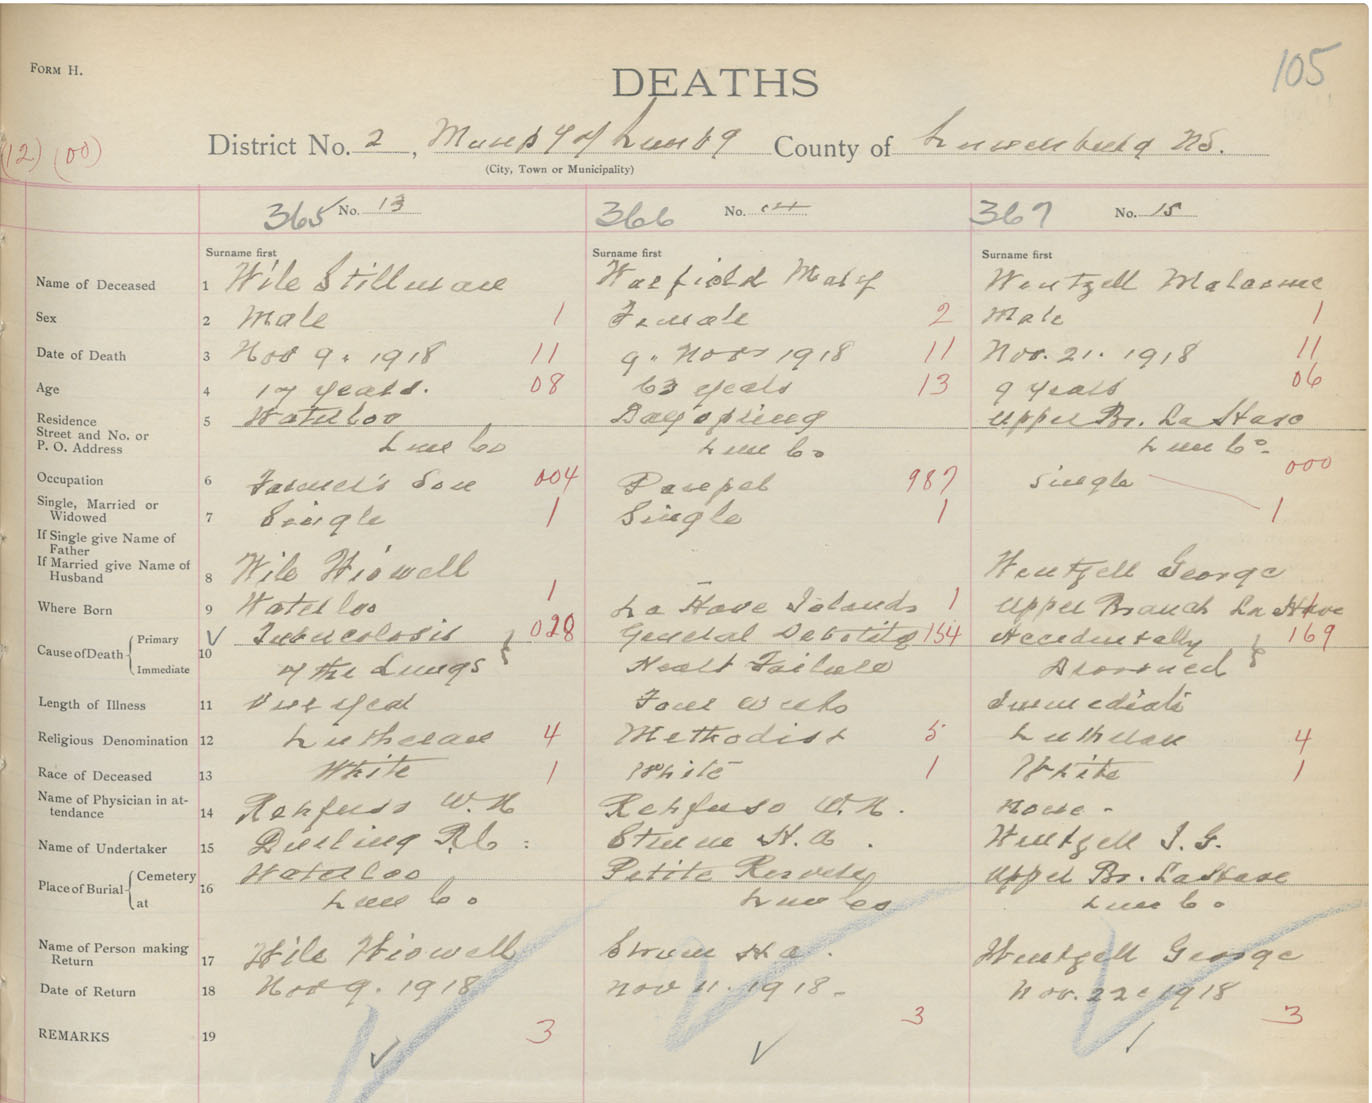 FORM H.
105
DEATHS
(12) (00)
District No. 2, Munpy of Lunbg County of Lunenburg NS.
(City, Town or Municipality)
365 No. 13 366 No. 14 367 No. 15
Surname first Surname first Surname first
Name of Deceased 1 Wile Stillman Mary Wentzell
Sex 2 Male 1 Female 2 Male 1
Date of Death 3 Nov 9. 1918 11 9. Nov 1918 11 Nov. 21. 1918 11
Age 4 17 years. 08 63 years 13 9 years 06
Residence 5 Waterloo Dayspring Upper Br. La Have
Street and No. or
P. O. Address Lun Co Lun Co Lun Co
Occupation 6 Farmer's Son 004 987 Single 000
Single, Married or
Widowed 7 Single 1 Single 1 1
If Single give Name of
Father
If Married give Name of
Husband 8 Wile Wentzell George
Where Born 9 Waterloo 1 La Have Islands 1 Upper Branch La Have
Cause of Death Primary 10 Tuberculosis 028 General Debility 154 Accidentally 169
Immediate of the Lungs Heart Failure Drowned
Length of Illness 11 One year Four weeks Immediate
Religious Denomination 12 Lutheran 4 Methodist 5 Lutheran 4
Race of Deceased 13 White 1 White 1 White 1
Name of Physician in at-
tendance 14 Rehfuss W. H Rehfuss W. H. None -
Name of Undertaker 15 H. A. Wentzell J. G.
Place of Burial Cemetery 16 Waterloo Petite Upper Br. LaHave
at Lun Co Lun Co Lun Co
Name of Person making
Return 17 Wile H a. Wentzell George
Date of Return 18 Nov 9. 1918 Nov 11. 1918- Nov. 22 1918
REMARKS 19 3 3 3